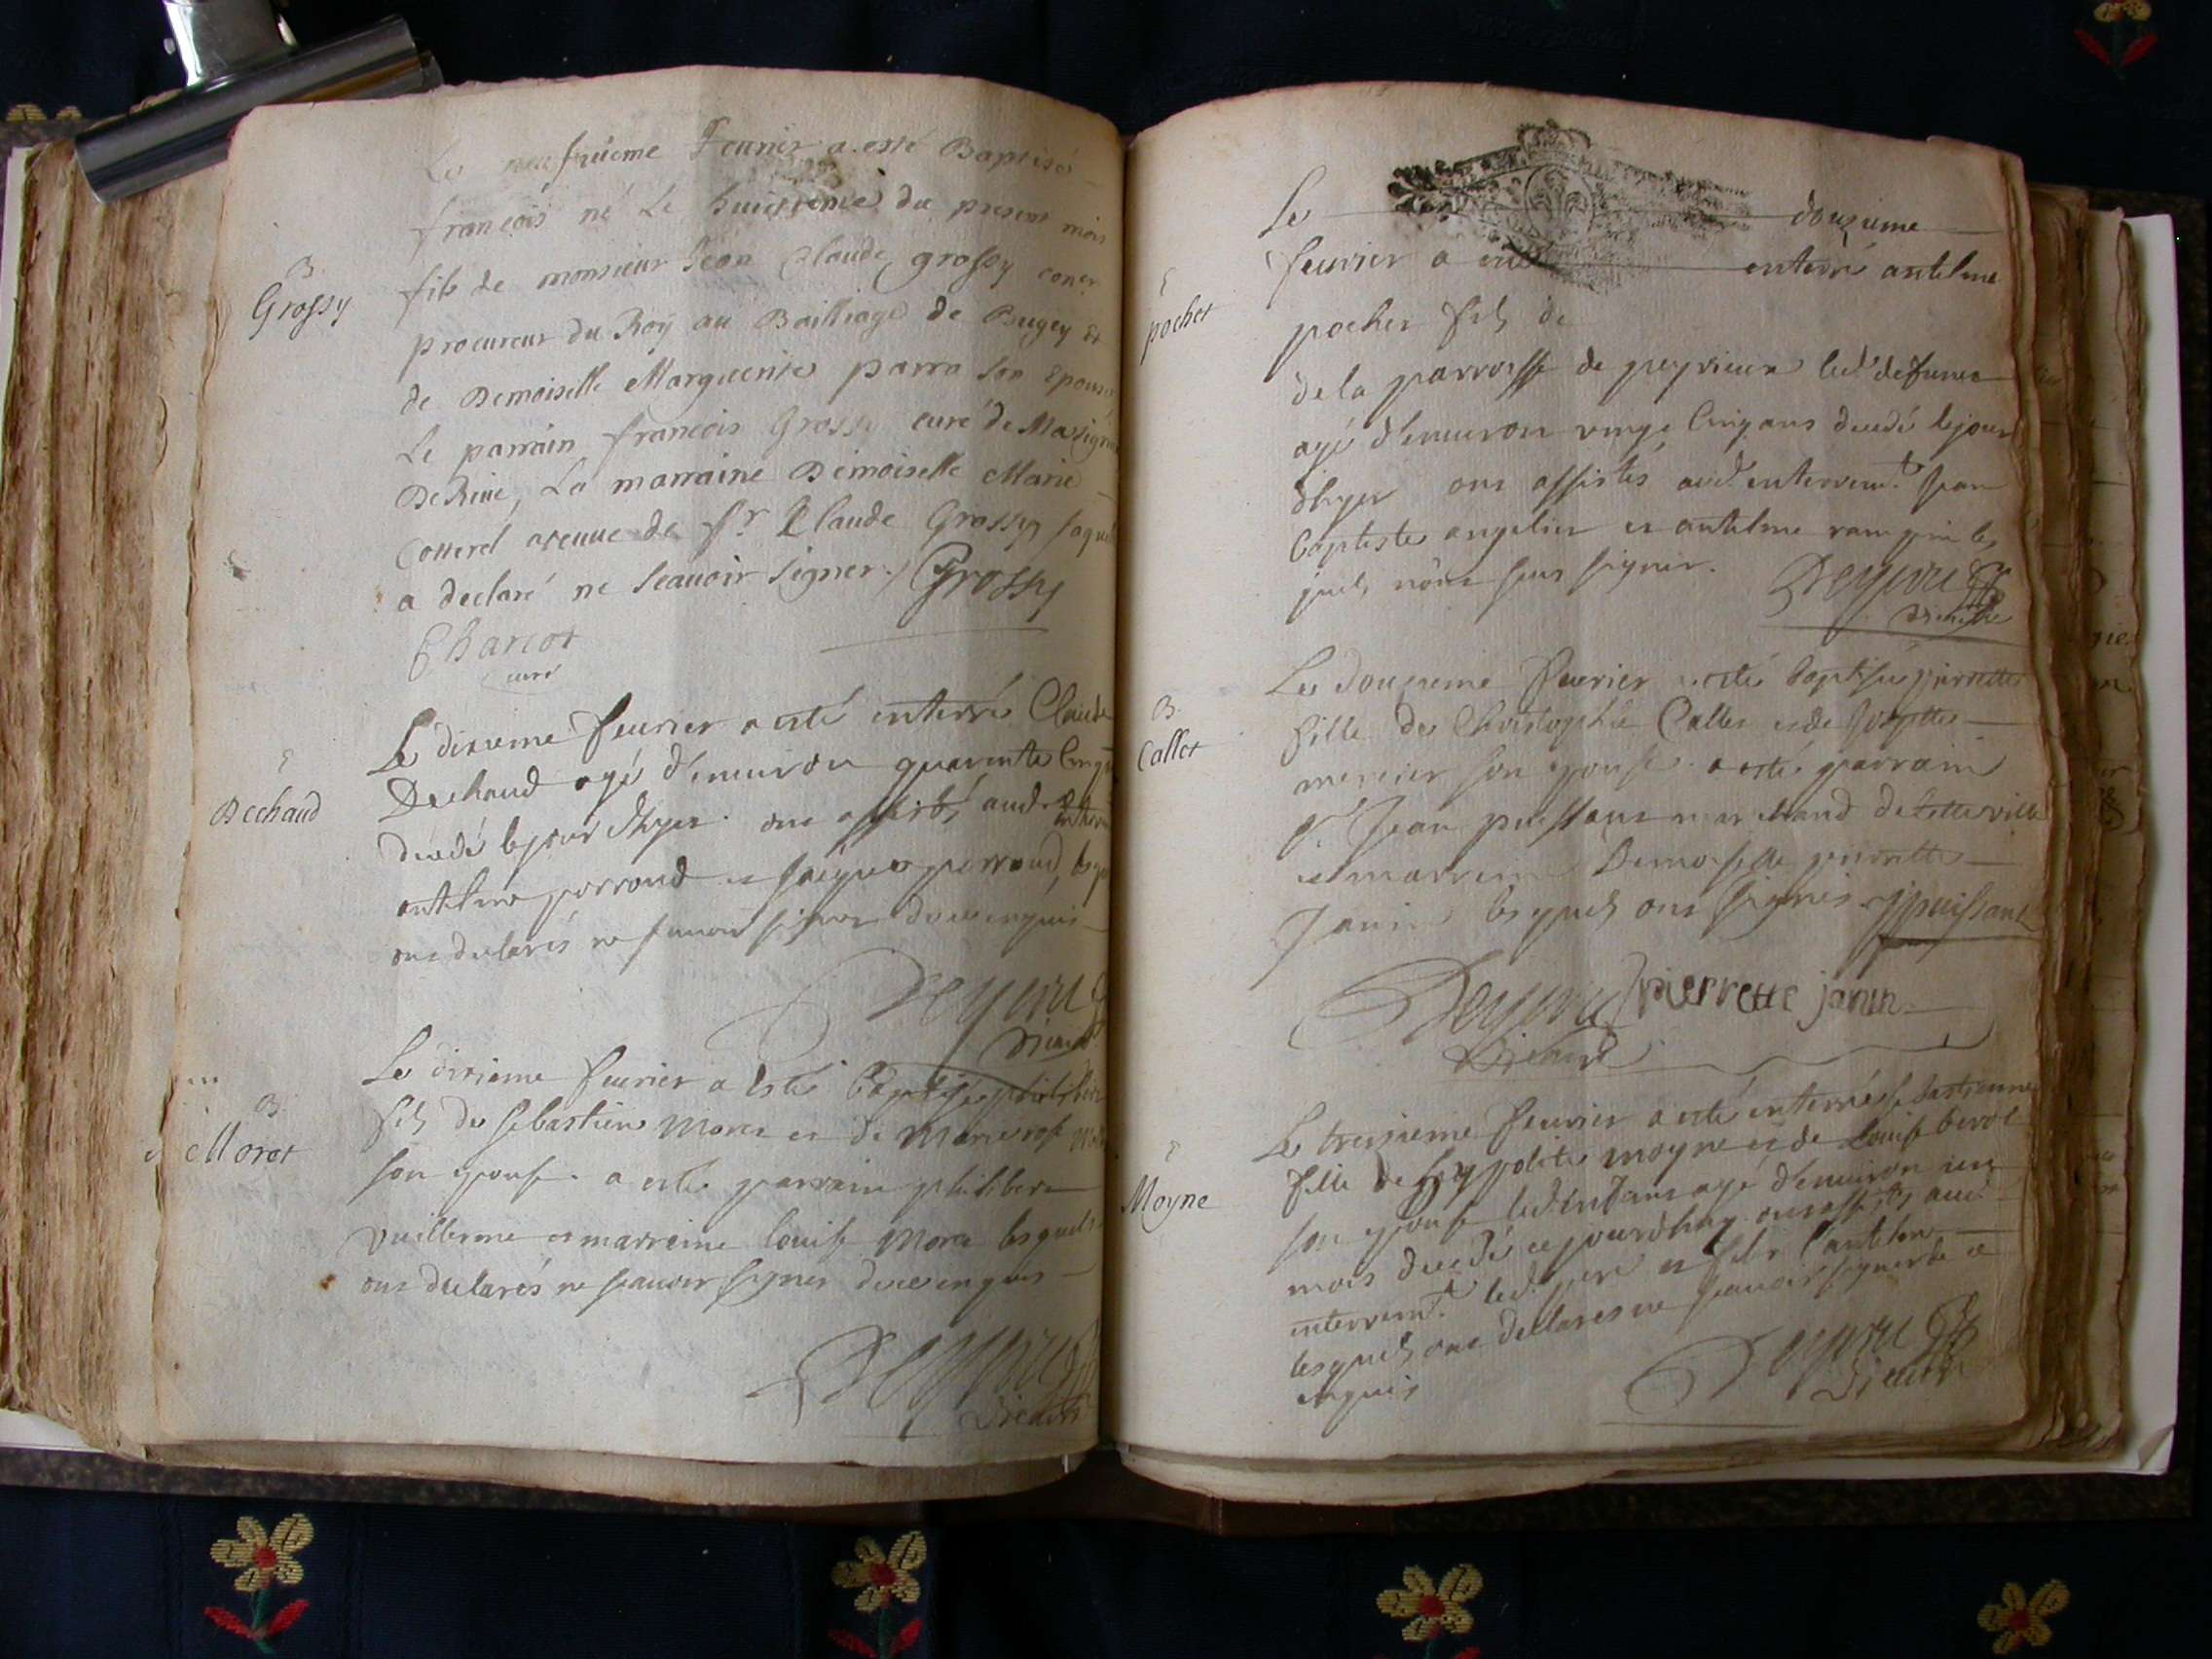 Le neufuieme Feurier a esté Baptisé
francois né Le huictieme du present mois
B
Grossy
fils de monsieur Jean Claude grossy coner
procureur du Roÿ au Bailliage de Bugey et
de Demoiselle Marguerite parra son Epouse
Le parrain francois Grossy curé de Massignieu
De Rive, La marraine Demoiselle Marie
Cotterel avenue de sr Claude Grossy laquel
a declaré ne scauoir signer. Grossy
Charcot
curé
E
Dechaud
Le dixieme feurier a esté enterré Claude
Dechaud agé d'enuiron quarente cinq
decedé le jour d'hyer. ont assistés aud. enterrem
antelme perroud et perroud, lesq
ont declarés ne scauoir signer de ce enquis
Deyeure
vicaire
B
Moret
Le dixieme feurier a esté baptisé philibert
fils de sebastien Moret et de Marie
son epouse. a esté parrain philibert
vuillerme et marreine louise Moret lesquels
ont declarés ne scauoir signer de ce enquis
Deyeure
vicaire
Le douzieme
feurier a esté enterré antelme
E
pochet
pochet fils de
de la parroisse de peyrieux led. defunct
agé d'enuiron vingt cinq ans decedé le jour
d'hyer ont assistés aud. enterrem.t Jean
baptiste angelier et antelme rampin les
quels n'ont sceus signer.
Deyeure
vicaire
B
Callet
Le douzieme feurier a esté baptisée pierrette
fille de Christophle Callet et de Josepte
mercier son epouse a esté parrain
sr. Jean puissant marchand de cette ville
et marreine Demoiselle pierrette
Janin lesquels ont signés. jpuissant
Deyeure pierrette janin
vicaire
E
Moyne
Le treizieme feurier a esté enterrée sebastienne
fille de hyppolite moyne et de Louise berot
son epouse led. enfant agé d'enuiron un
mois decedé ce jourdhuy ont assistés aud.
enterrem.t led. pere et antelme
lesquels ont declarés ne scauoir signer de ce
enquis
Deyeure
vicaire